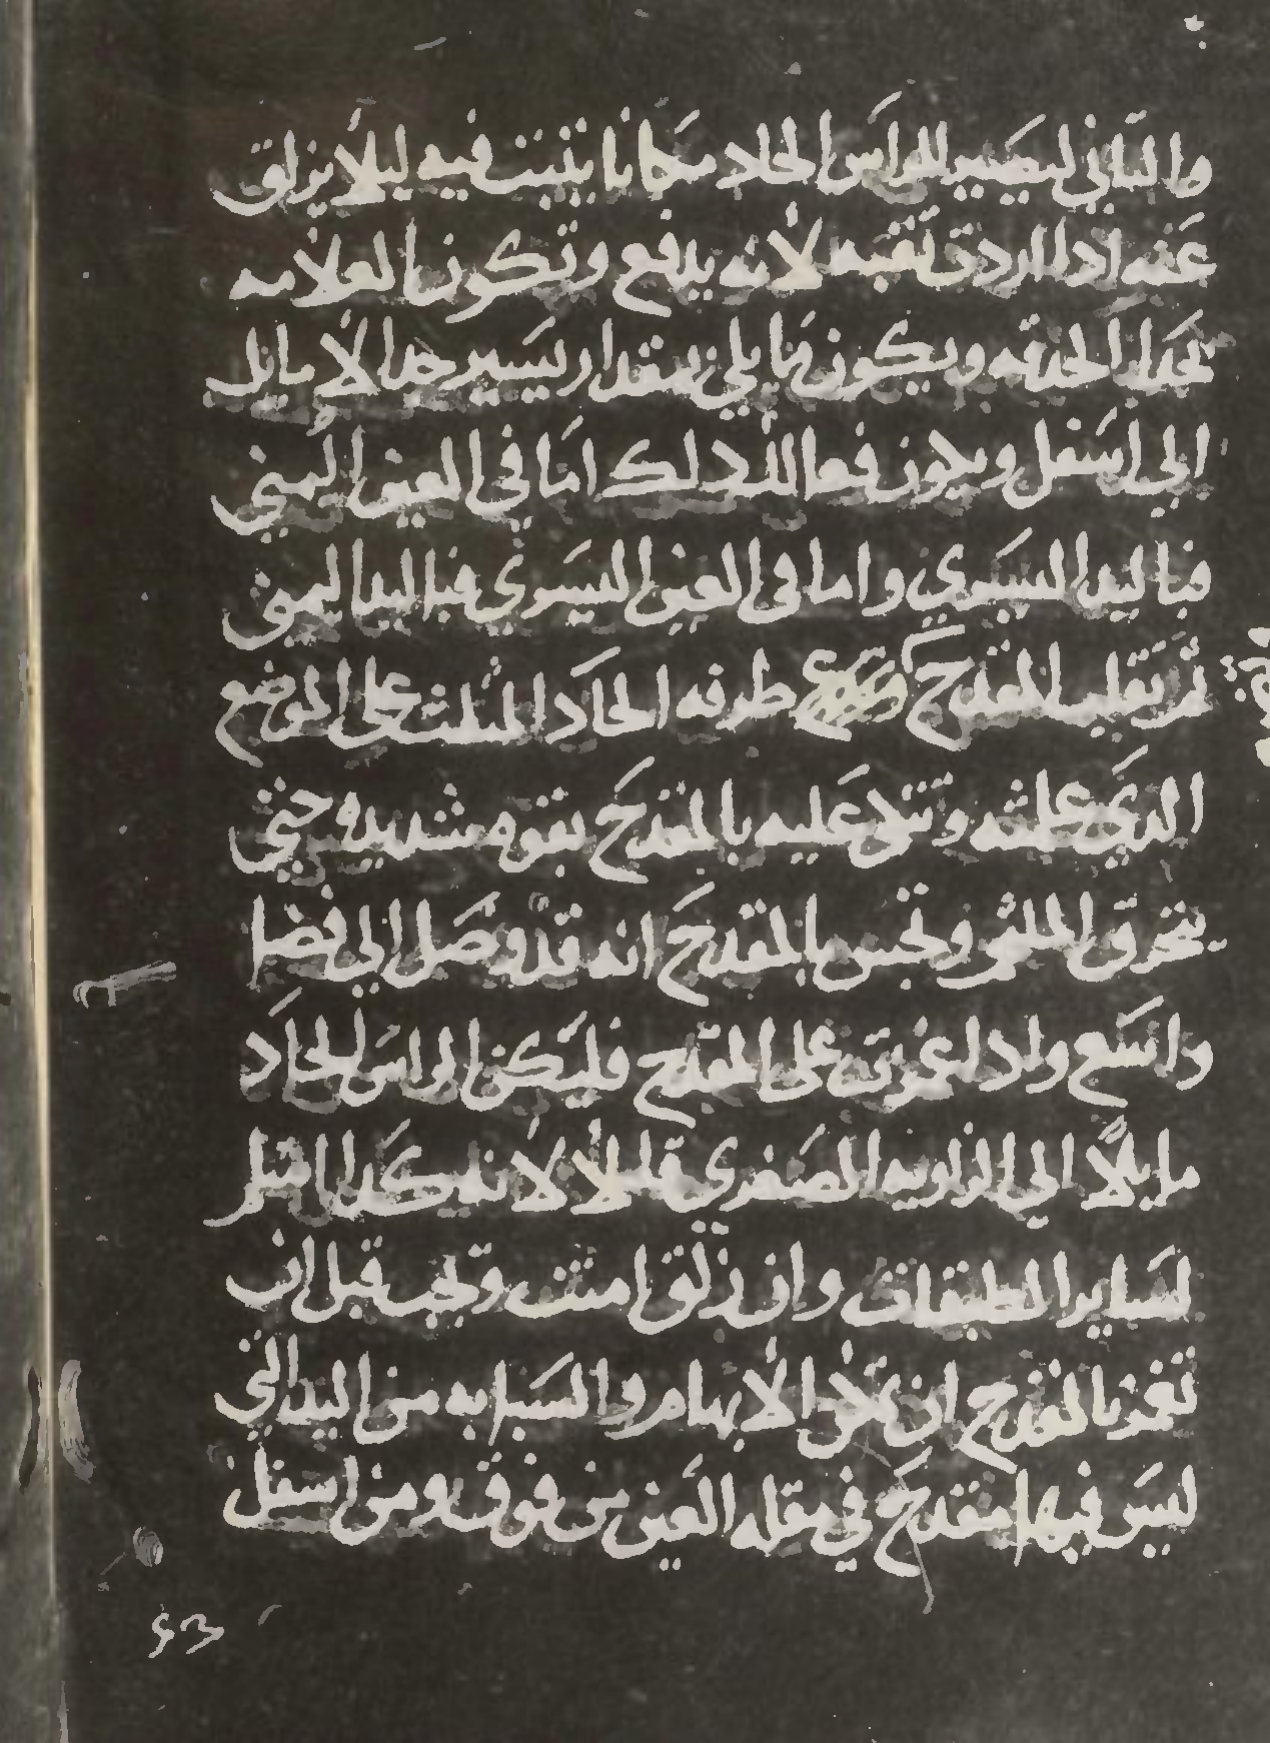 والثاني ليصير للراس الحاد مكانا يثبت فيه ليلا يزلق
عنه اذا اردت ثقبه لانه يدفع وتكون العلامه
بحدا الحدقه ويكون مايلي بمقدار يسير جدا لا مايل
الى اسفل ويكون فعالك دلك اما في العين اليمني
فباليد اليسري واما في العين اليسري فبااليد اليمنى
ثم تقلب المقدح طرفه الحاد المثلث على الموضع
الدي علمته وتتكي عليه بالمقدح بقوه شديده حتى
يتخرق الملتحم وتحس بالمقدح انه قد وصل الي فضا
واسع وادا غمزت على المقدح فليكن الراس الحاد
مايلا الي الزاويه الصغرى قليلا لانه كدا اسلم
لساير الطبقات وان زلق امنت وتحب قبل ان
تغمز بالمقدح ان الابهام والسبابه من اليد التي
ليس فيها مقدح في مقله العين من فوق ومن اسفل